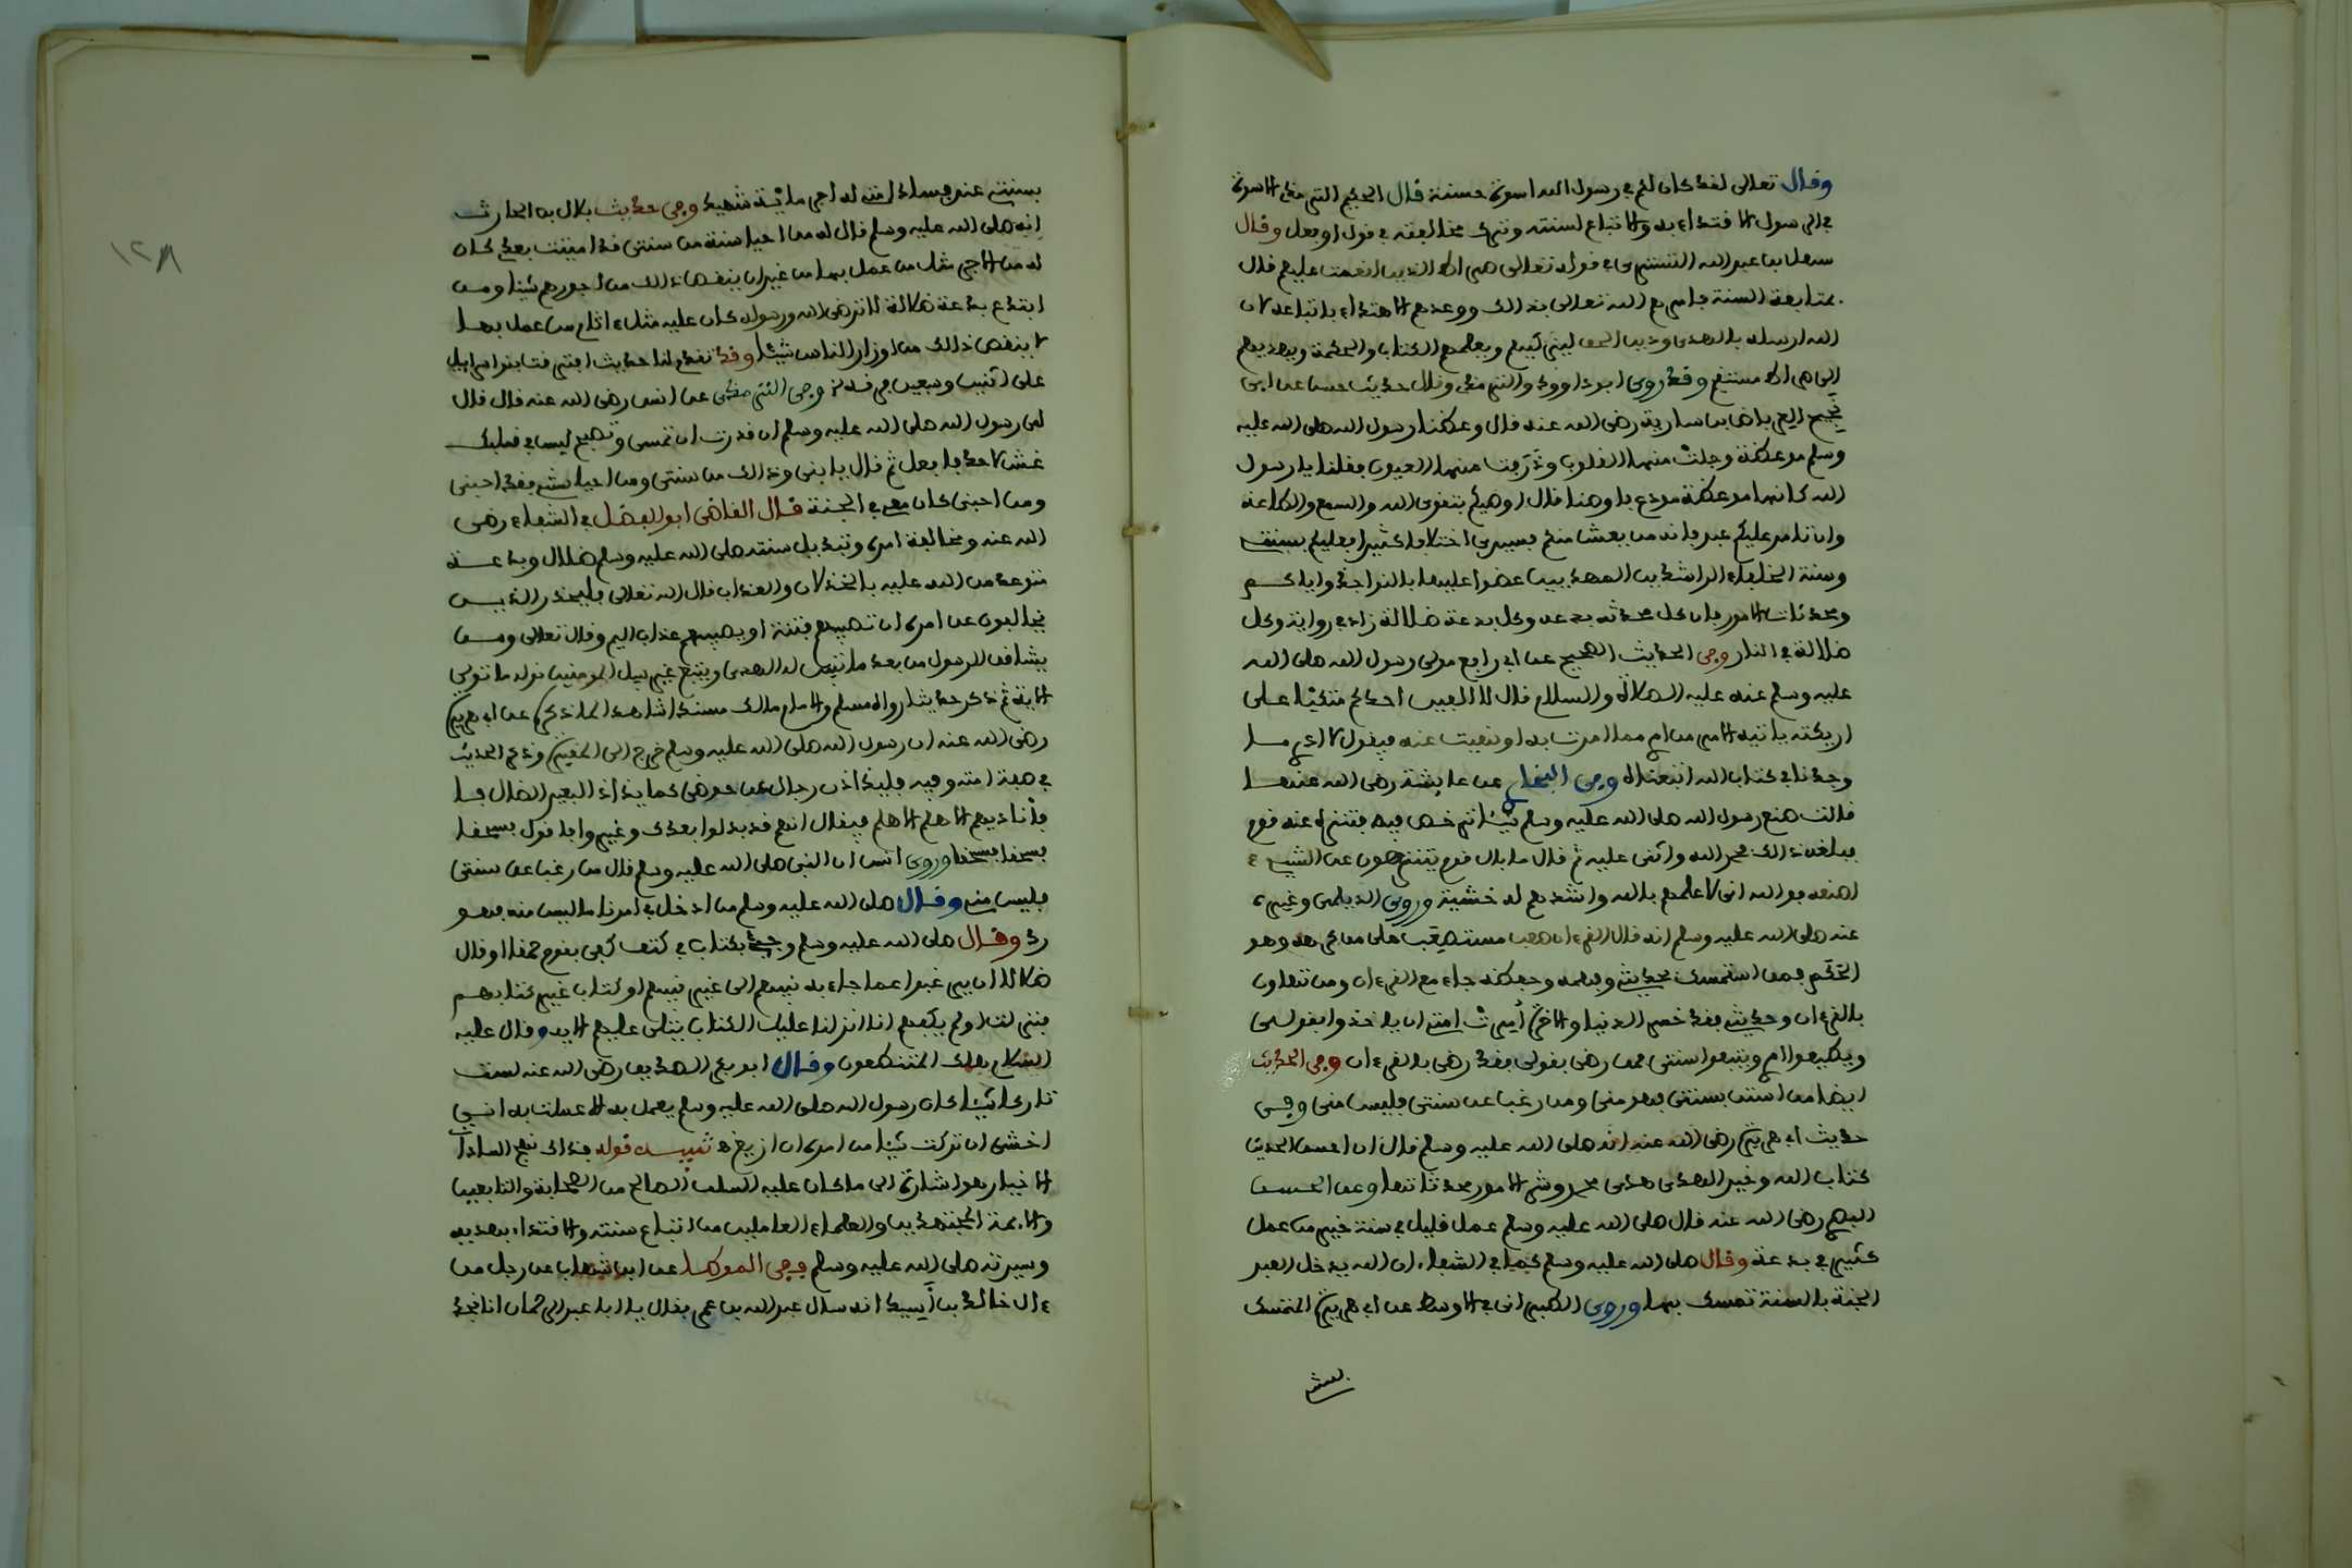 وقال تعالى لقد كان لكم في رسول الله اسوة حسنة قال الحكيم الترمذي الاسوة
في الرسول الاقتداء به والاتباع لسنته وترك مخالفته في قول او فعل وقال
سهل بن عبد الله التستري في قوله تعالى صراط الذين انعمت عليهم قال
بمتابعة السنة فامرهم الله تعالى بذالك ووعدهم الاهتداء باتباعه لان
الله ارسله بالهدى ودين الحق ليزكيهم ويعلمهم الكتاب والحكمة ويهديهم
الى صراط مستقيم وقد روى ابو داوود والترمذي وقال حديث حسن عن ابي
نجيح العرباض بن سارية رضي الله عنه قال وعظنا رسول الله صلى الله عليه
وسلم موعظة وجلت منها القلوب وذرفت منها العيون فقلنا يا رسول
الله كانها موعظة مودع فاوصنا قال اوصيكم بتقوى الله والسمع والطاعة
وان تامر عليكم عبد فانه من يعش منكم فسيرى اختلافا كثيرا فعليكم بسنتي
وسنة الخلفاء الراشدين المهديين عضوا عليها بالنواجذ واياكم
ومحدثات الامور فان كل محدثة بدعة وكل بدعة ضلالة زاد في رواية وكل
ضلالة في النار وفي الحديث الصحيح عن ابي رافع مولى رسول الله صلى الله
عليه وسلم عنه عليه الصلاة والسلام قال لا الفين احدكم متكئا على
اريكته ياتيه الامر من امري مما امرت به او نهيت عنه فيقول لا ادري ما
وجدنا في كتاب الله اتبعناه وفي البخاري عن عايشة رضي الله عنها
قالت صنع رسول الله صلى الله عليه وسلم شيئا ترخص فيه فتنزه عنه قوم
فبلغه ذالك فحمد الله واثنى عليه ثم قال ما بال قوم يتنزهون عن الشيء
اصنعه فو الله اني لاعلمهم بالله واشدهم له خشية وروى الديلمي وغيره
عنه صلى الله عليه وسلم انه قال القرءان صعب مستصعب على من كرهه وهو
الحكم فمن استمسك بحديثي وفهمه وحفظه جاء مع القرءان ومن تهاون
بالقرءان وحديثي فقد خسر الدنيا والاخرة أمرت امتي ان ياخذوا بقولي
ويطيعوا امري ويتبعوا سنتي فمن رضي بقولي فقد رضي بالقرءان وفي الحديث
ايضا من استن بسنتي فهو مني ومن رغب عن سنتي فليس مني وفي
حديث ابي هريرة رضي الله عنه انه صلى الله عليه وسلم قال ان احسن الحديث
كتاب الله وخير الهدى هدى محمد وشر الامور محدثاتها وعن الحسن
البصري رضي الله عنه قال صلى الله عليه وسلم عمل قليل في سنة خير من عمل
كثير في بدعة وقال صلى الله عليه وسلم كما في الشفاء ان الله يدخل العبد
الجنة بالسنة تمسك بها وروى الطبراني في الاوسط عن ابي هريرة المتمسك
بسنتي
١٢٨
بسنتي عند فساد امتي له اجر ماية شهيد وفي حديث بلال بن الحارث
انه صلى الله عليه وسلم قال له من احيا سنة من سنتي قد اميتت بعدي كان
له من الاجر مثل من عمل بها من غير ان ينقص ذالك من اجورهم شيئا ومن
ابتدع بدعة ضلالة لا ترضي الله ورسوله كان عليه مثل ءاثام من عمل بها
لا ينقص ذالك من اوزار الناس شيئا وقد تقدم لنا حديث افترقت بنو اسراييل
على اثنين وسبعين فرقة وفي الترمذي عن انس رضي الله عنه قال قال
لي رسول الله صلى الله عليه وسلم ان قدرت ان تمسي وتصبح ليس في قلبك
غش لاحد فافعل ثم قال يا بني وذالك من سنتي ومن احيا سنتي فقد احبني
ومن احبني كان معي في الجنة قال القاضي ابو الفضل في الشفاء رضي
الله عنه ومخالفة امره وتبديل سنته صلى الله عليه وسلم ضلال وبدعة
متوعد من الله عليه بالخذلان والعذاب قال الله تعالى فليحذر الذين
يخالفون عن امره ان تصيبهم فتنة او يصيبهم عذاب اليم وقال تعالى ومن
يشاقق الرسول من بعد ما تبين له الهدى ويتبع غير سبيل المومنين نوله ما تولى
الاية ثم ذكر حديثا رواه مسلم والامام مالك مسندا شاهدا لما ذكره عن ابي هريرة
رضي الله عنه ان رسول الله صلى الله عليه وسلم خرج الى المقبرة وذكر الحديث
في صفة امته وفيه فليذادن رجال عن حوضي كما يذاد البعير الضال فا
فأناديهم الا هلم الا هلم فيقال انهم قد بدلوا بعدك وغيروا فاقول فسحقا
فسحقا فسحقا وروى انس ان النبي صلى الله عليه وسلم قال من رغب عن سنتي
فليس مني وقال صلى الله عليه وسلم من ادخل في امرنا ما ليس منه فهو
رد وقال صلى الله عليه وسلم وجيء بكتاب في كتف كفى بقوم حمقا او قال
ضلالا ان يرغبوا عما جاء به نبيهم الى غير نبيهم او كتاب غير كتابهم
فنزلت اولم يكفهم انا انزلنا عليك الكتاب يتلى عليهم الاية وقال عليه
السلام هلك المتنطعون وقال ابو بكر الصديق رضي الله عنه لست
تاركا شيئا كان رسول الله صلى الله عليه وسلم يعمل به الا عملت به اني
اخشى ان تركت شيئا من امره ان ازيغ تنبيه قوله فذاك نهج السادات
الاخيار هو اشارة الى ما كان عليه السلف الصالح من الصحابة والتابعين
والايمة المجتهدين والعلماء العاملين من اتباع سنته والاقتداء بهديه
وسيرته صلى الله عليه وسلم ففي الموطا عن ابن شهاب عن رجل من
ءال خالد بن أسيد انه سال عبد الله بن عمر فقال يا ابا عبد الرحمان انا نجد